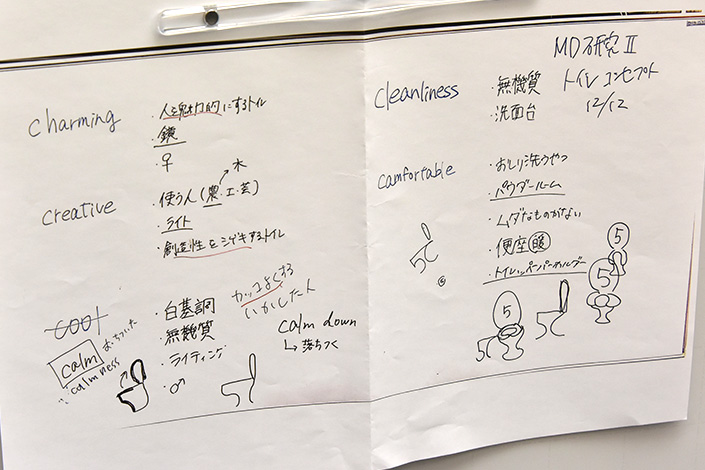 MD研究 II
トイレ コンセプト
12/12
charming
・人を魅力的にするトイレ
・鏡
・♀
creative
・使う人(農・工・芸)
木
・ライト
・創造性をシゲキするトイレ
cool
calm
おちついた
calmness
・白基調
・無機質
・ライティング
・♂
カッコよくする
いかした人
calm down
↳落ちつく
cleanliness
・無機質
・洗面台
camfortable
・おしり洗うやつ
・パウダールーム
・ムダなものがない
・便座 暖
・トイレッペーパーホルダー
5
5
5